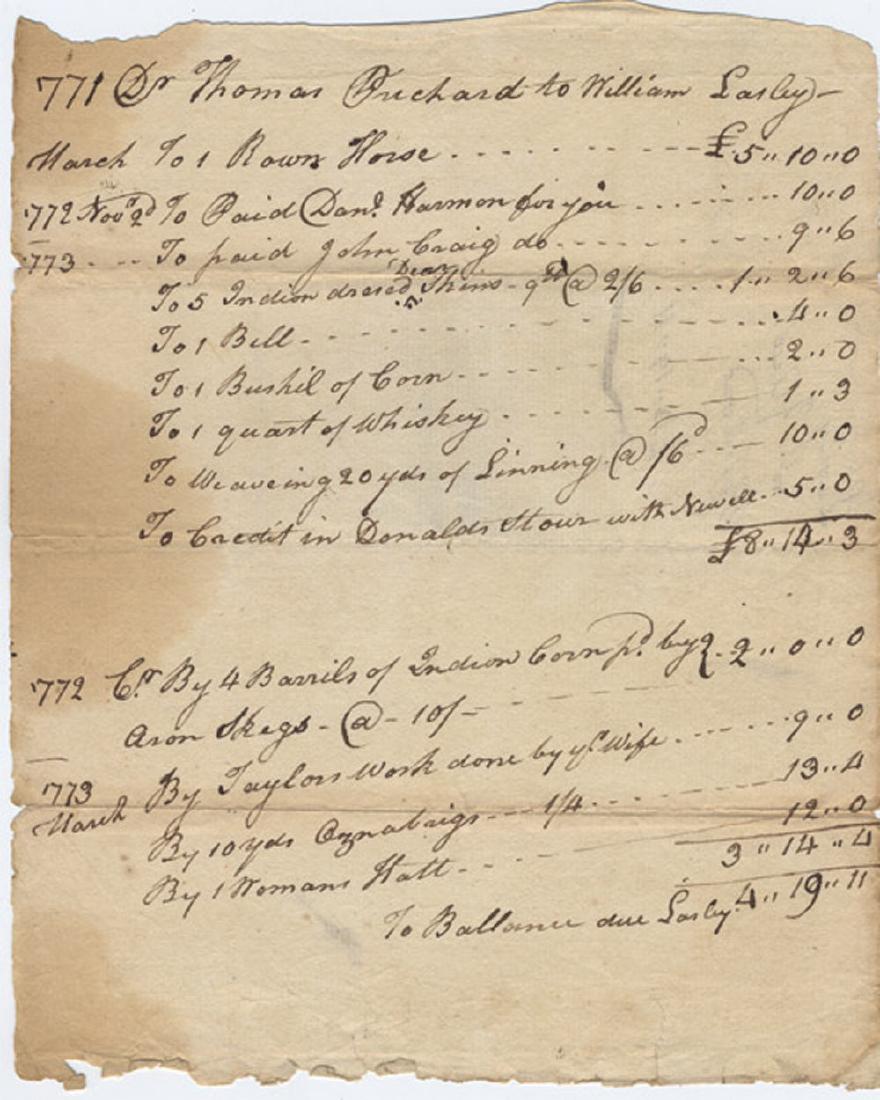 771 Dr Thomas Prichard to William Lasley -
March To 1 Rown Horse - - - - £ 5 " 10 " 0
1772 Novr 2d To Paid Danl. Harmon for you - - - - 10 " 0
1773 - - - To paid John Craig do - - - - 9 " 6
To 5 Indion dresed Dear Skins - 9 lb @ 2/6 - - - - 1 " 2 " 6
To 1 Bell - - - - 4 " 0
To 1 Bushil of Corn - - - - 2 " 0
To 1 quart of Whiskey - - - - 1 " 3
To Weaveing 20 yds of Linning @ /6d - - - - 10 " 0
To Credit in Donalds Stour with Newell - - 5 " 0
£ 8 " 14 " 3
1772 Cr. By 4 Barrils of Indion Corn pd. by } - 2 " 0 " 0
Aron Skegs - @ - 10/- - - - -
1773 By Taylors Work done by yr. Wife - - - - 9 " 0
March By 10 yds Oznabrigs - - - 1/4 - - - - 13 " 4
By 1 Womans Hatt - - - - 12 " 0
3 " 14 " 4
To Ballance due Lasley 4 " 19 " 11